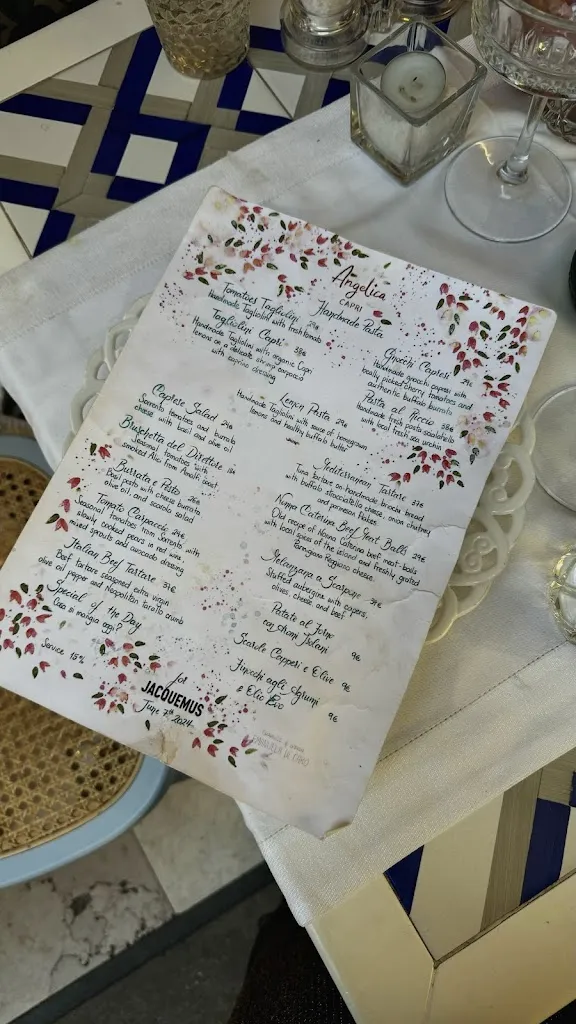 Angelica
CAPRI
Handmade Pasta
Tomatoes Tagliolini 29€
Handmade Tagliolini with fresh tomato
Tagliolini Capri 38€
Handmade Tagliolini with organic Capri
lemons on a delicate shrimp carpaccio
with
dressing
Gnocchi Capresi 29€
Handmade gnocchi caprese with
locally picked cherry tomatoes and
authentic buffalo burrata
Lemon Pasta 29€
Handmade Tagliolini with sauce of homegrown
lemons and healthy buffalo butter
Pasta al Riccio 58€
Handmade fresh pasta scialatiello
with local fresh sea urchin
Caprese Salad 24€
Sorrento tomatoes and burrata
cheese with basil and olive oil
Bruschetta del Direttore
Seasonal tomatoes with
smoked Alici from Amalfi coast
Burrata e Pesto 26€
Basil pesto with cheese burrata
olive oil, and rucola salad
Tomato Carpaccio 24€
Seasonal tomatoes from Sorrento with
slowly cooked pears in red wine
mixed sprouts and avocado dressing
Italian Beef Tartare 37€
Beef tartare seasoned extra virgin
olive oil pepper and Neapolitan tarallo crumb
Special of the Day
Cosa si mangia oggi?
Service 15%
Mediterranean Tartare 37€
Tuna tartare on handmade brioche bread
with buffalo stracciatella cheese, onion chutney
and parmesan flakes
Nonna Caterina Beef Meat Balls 29€
Old recipe of Nonna Caterina beef meat-balls
with local spices of the island and freshly grated
Parmigiano Reggiano cheese.
Melanzana a Scarpone 31€
Stuffed aubergine with capers,
olives, cheese, and beef
Patate al Forno
con Aromi Isolani 9€
Scarole Capperi e Olive 9€
Finocchi agli Agrumi
e Olio Evo 9€
for
JACQUEMUS
June 7th 2024